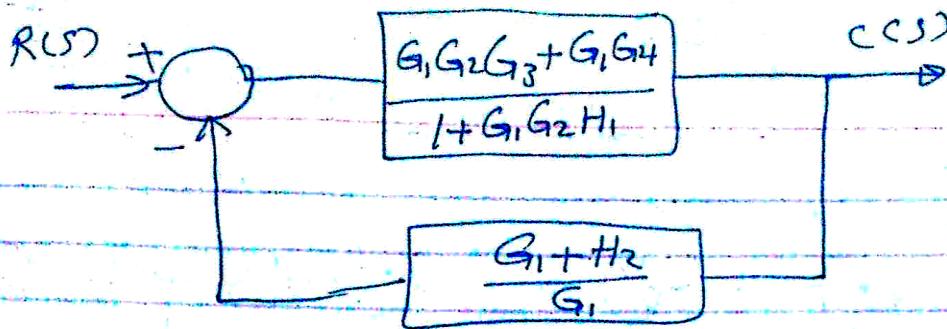 R(S)
C(S)
+
G₁G₂G₃+G₁G₄
1+G₁G₂H₁
-
G₁+H₂
G₁